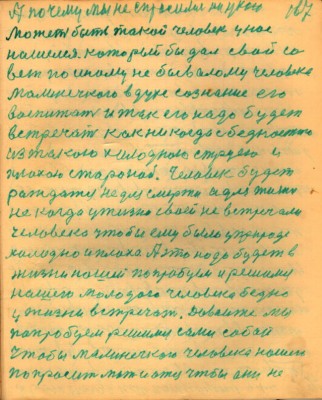 А почему мы не спросили ни у кого 167
Может быть такой человек у нас
нашелся. который бы дал свой со
вет по иному не бывалому человека
маминечкого в духе сознание его
воспитат и так его надо будет
встречат как никогда с бедностию
из такою холодною струею и
плохою стороноб. Человек будет
раждатся не для смерти а для жизни
не когда у жизни своей не встречали
человека чтобы ему было у природе
холодно и плоха А это надо будет в
жизни нашей попробуем и решими
нашего молодого человека бедно
у жизни встречат. Довайте мы
попробуем решими сами собой
чтобы маминечкого человека нашего
попросит мат и отцу чтбы ани не